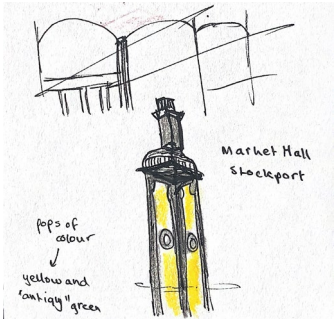 Market Hall
Stockport
pops of
colour
yellow and
"antiqy" green